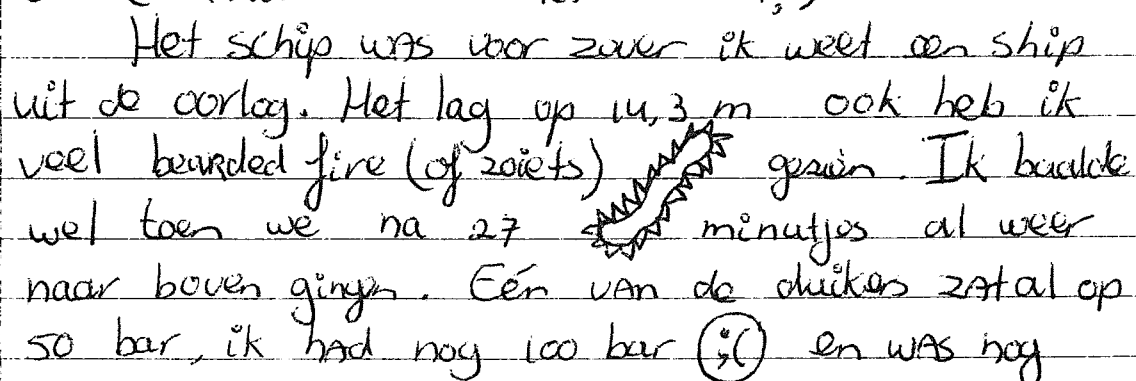 Het schip was voor zover ik weet een ship
uit de oorlog. Het lag op 14,3 m ook heb ik
veel bearded fire (of zoiets) gezien. Ik baalde
wel toen we na 27 minutjes al weer
naar boven gingen. Eén van de duikers zat al op
50 bar, ik had nog 100 bar ;( en was nog